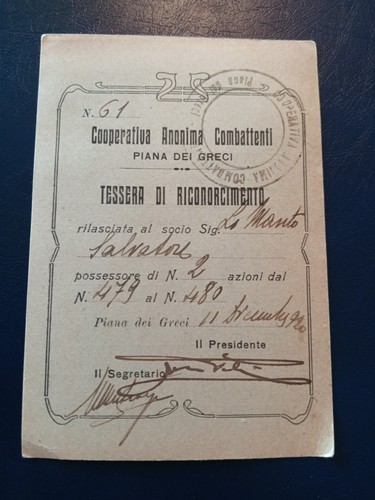 N. 61
Cooperativa Anonima Combattenti
PIANA DEI GRECI
TESSERA DI RICONORCIMENTO
rilasciata al socio Sig. Lo Manto
Salvatore
possessore di N. 2 azioni dal
N. 479 al N. 480
Piana dei Greci 11 Dicembre 920
Il Presidente
Il Segretario
COOPERATIVA ANONIMA COMBATTENTI